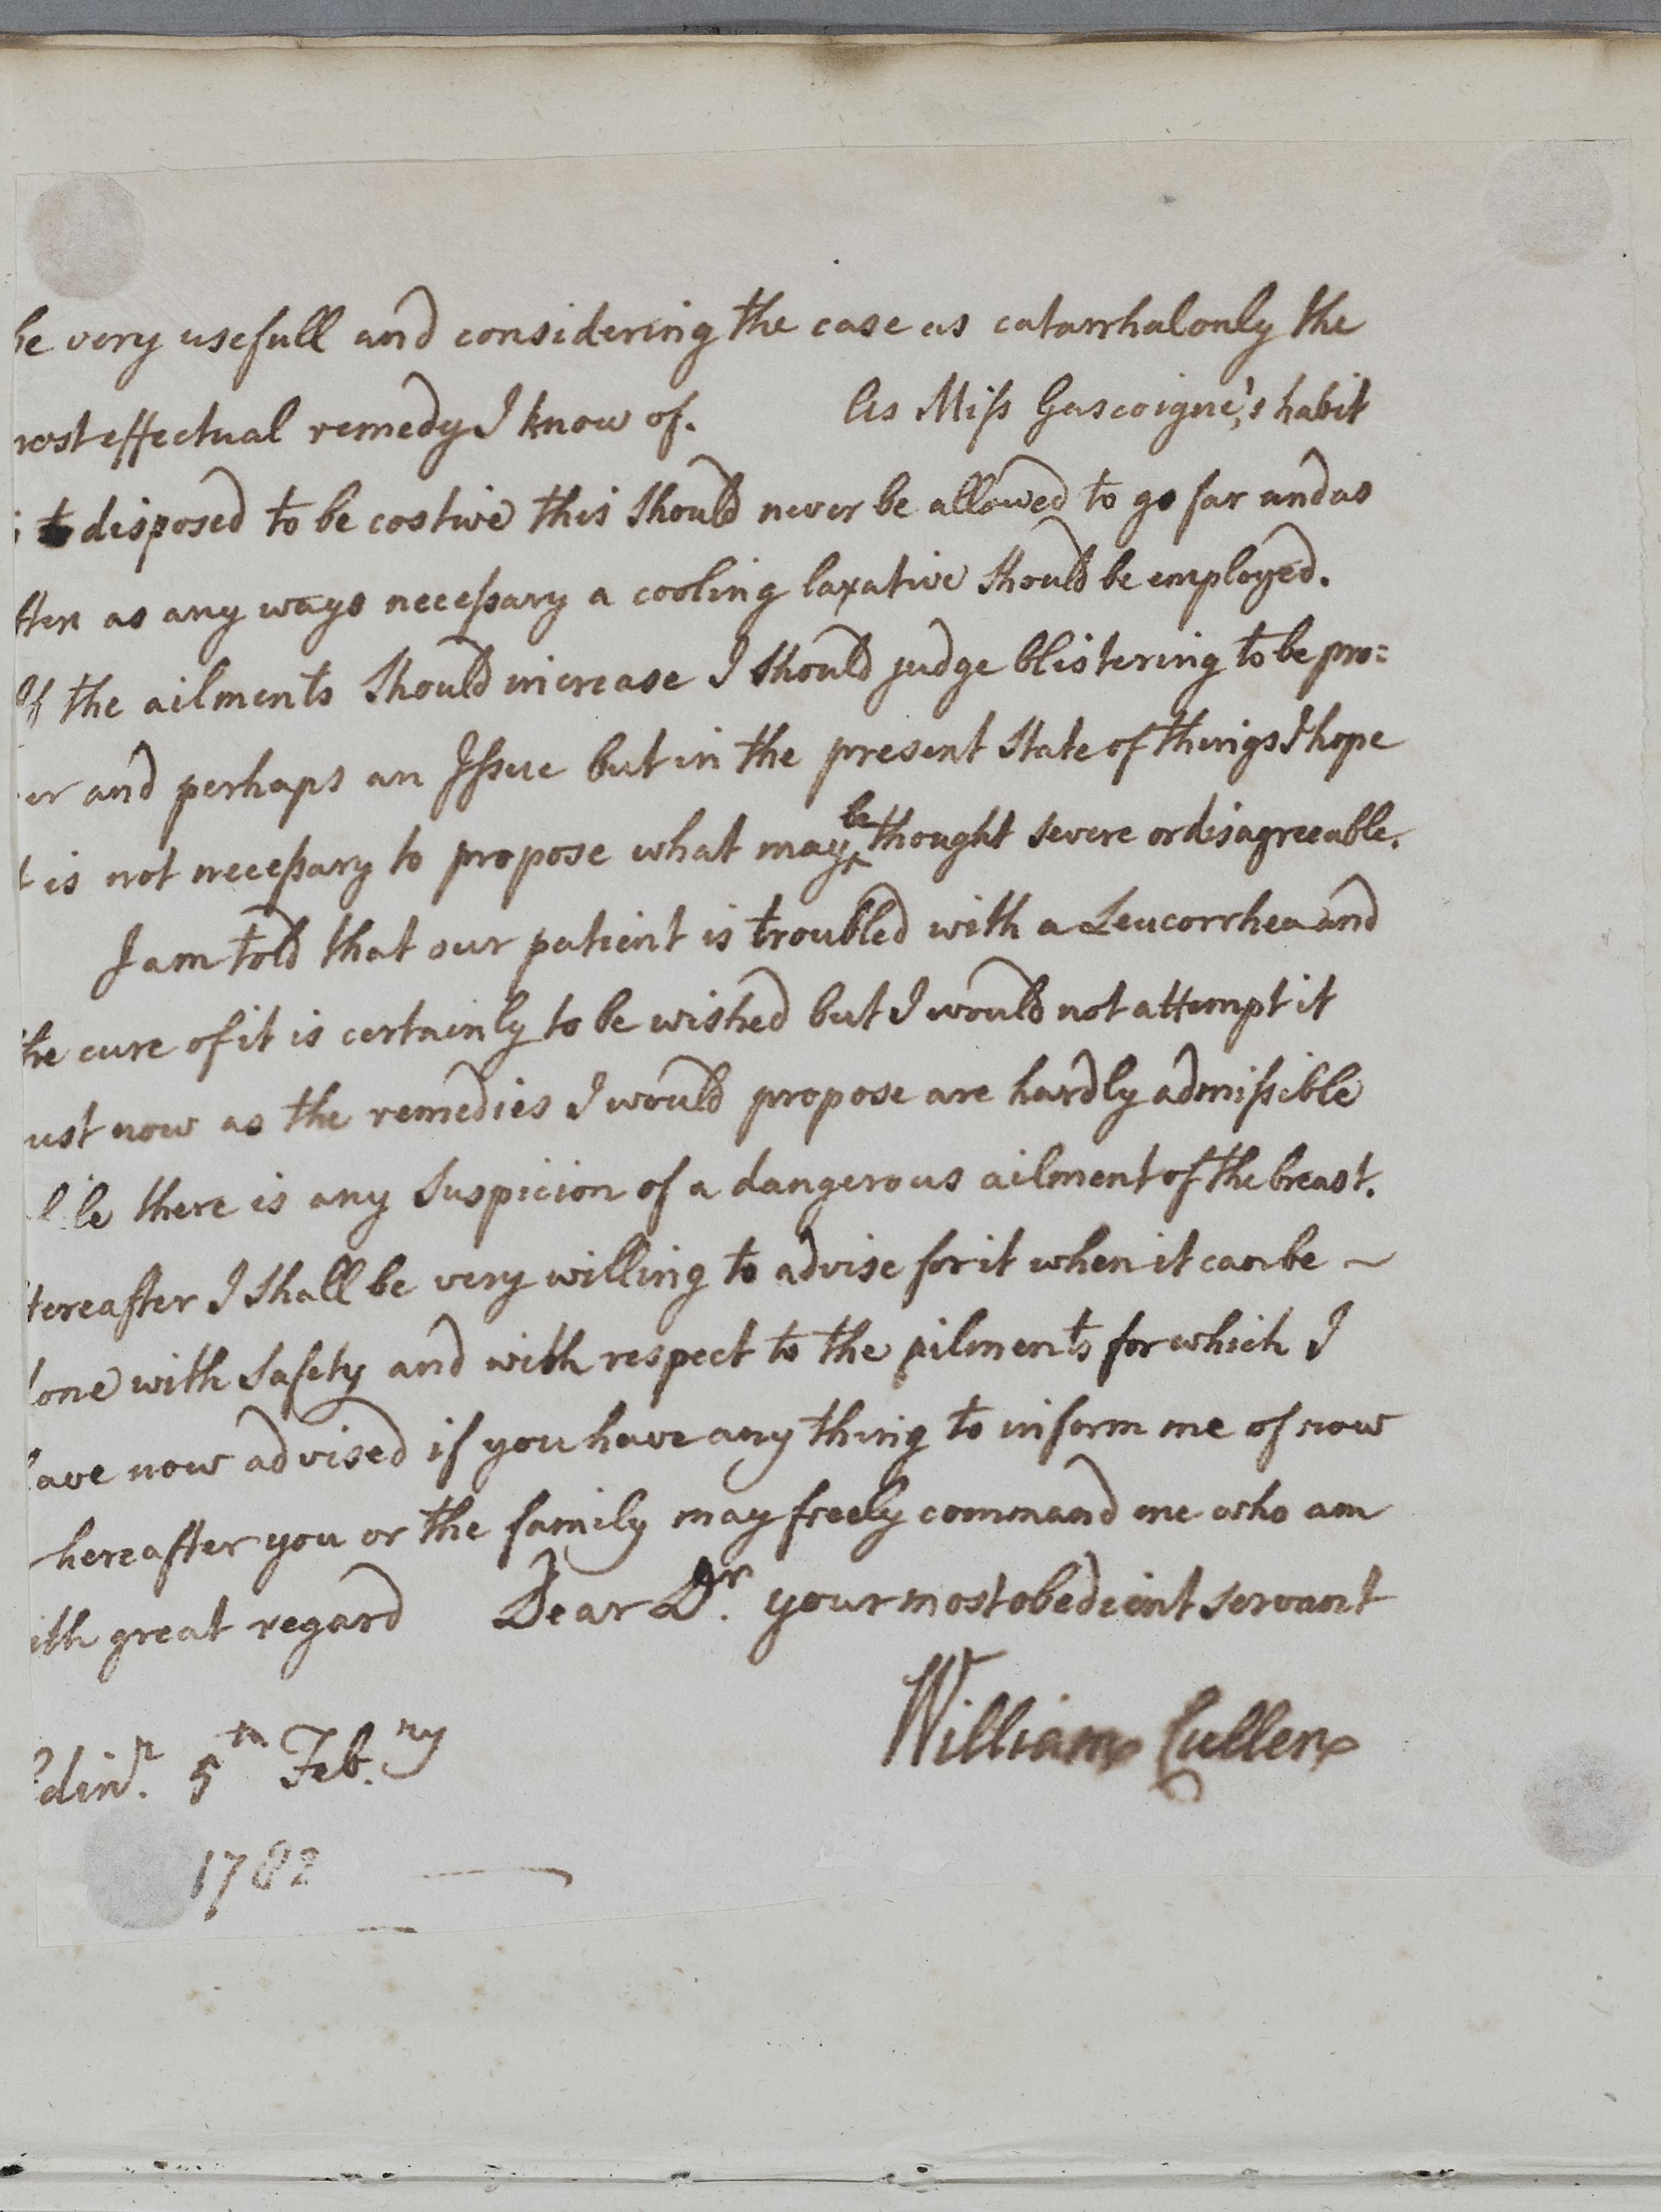 be very usefull and considering the case as catarrhal only the
most effectual remedy I know of. As Miss Gascoigne's habit
is disposed to be costive this should never be allowed to go far and as
often as any ways necessary a cooling laxative should be employed.
If the ailments should increase I should judge blistering to be pro=
per and perhaps an Issue but in the present state of things I hope
it is not necessary to propose what may be thought severe or disagreeable.
I am told that our patient is troubled with a Leucorrhea and
the cure of it is certainly to be wished but I would not attempt it
just now as the remedies I would propose are hardly admissible
while there is any suspicion of a dangerous ailment of the breast.
Hereafter I shall be very willing to advise for it when it can be ~
done with safety and with respect to the ailments for which I
have now advised if you have any thing to inform me of now
hereafter you or the family may freely command me who am
with great regard Dear Dr. your most obedient servant
William Cullen
Edinr. 5th Feb.ry
1782